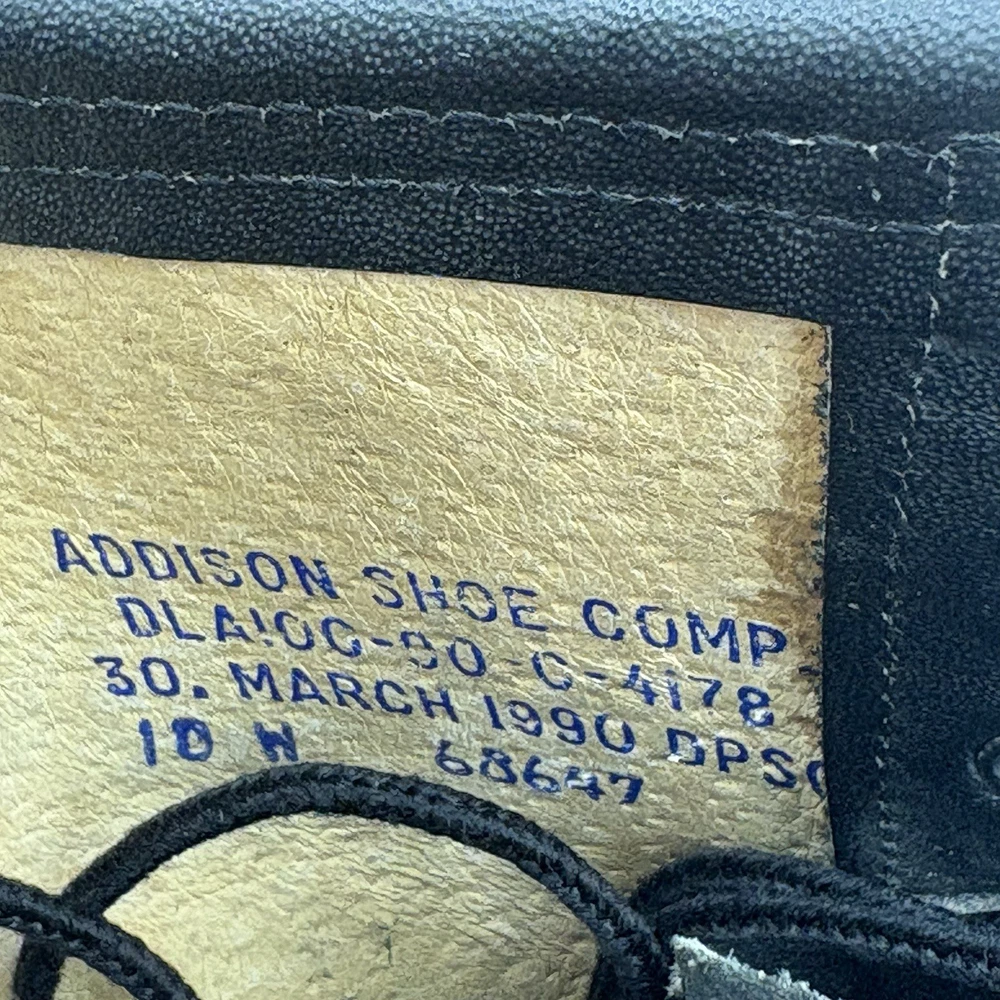 ADDISON SHOE COMP
DLA100-90-C-4178
30. MARCH 1990 DPSC
10 W 68647